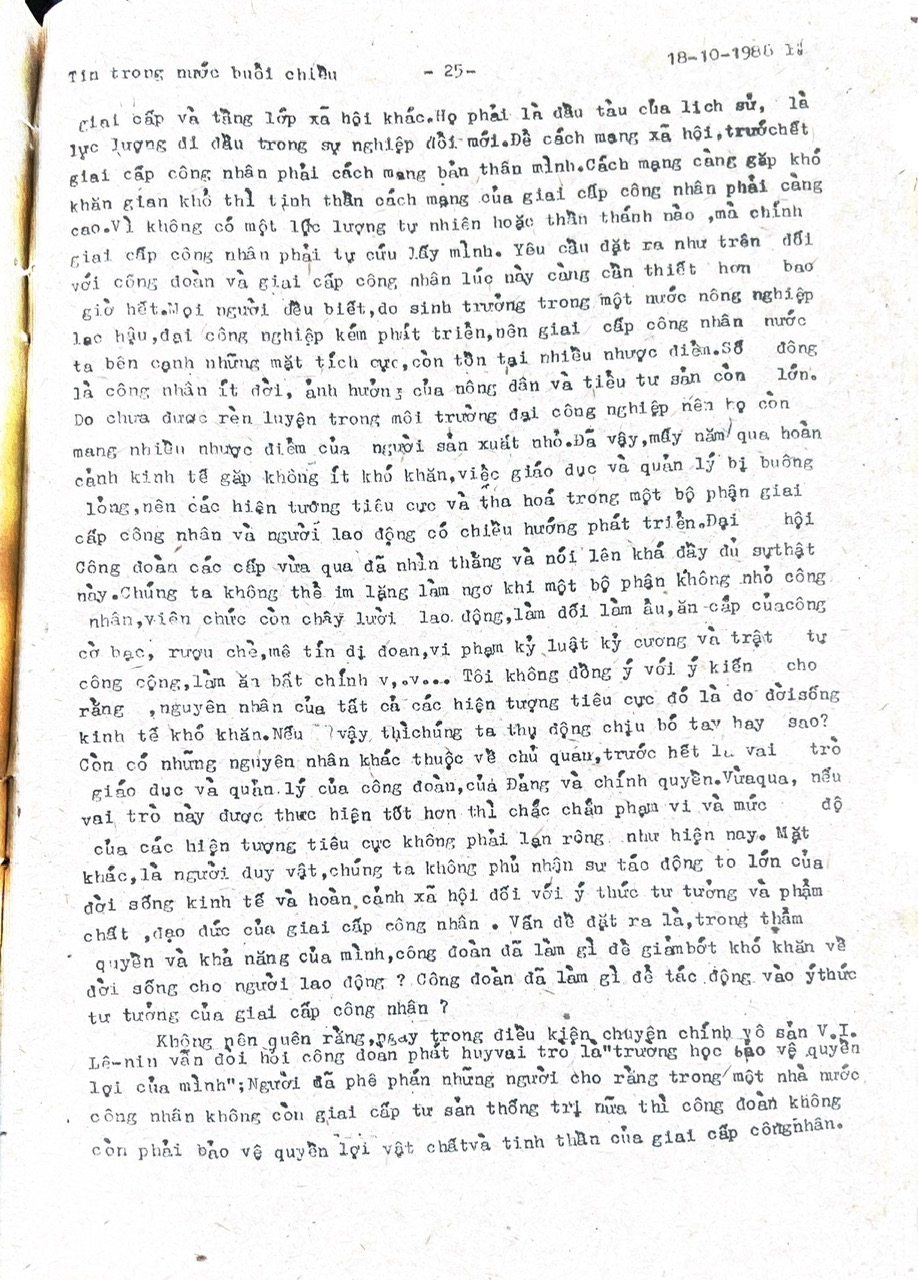 Tin trong nước buổi chiều - 25- 18-10-1988
giai cấp và tầng lớp xã hội khác.Họ phải là đầu tàu của lịch sử, là
lực lượng đi đầu trong sự nghiệp đổi mới.Để cách mạng xã hội,trướchết
giai cấp công nhân phải cách mạng bản thân mình.Cách mạng càng gặp khó
khăn gian khổ thì tịnh thần cách mạng của giai cấp công nhân phải càng
cao.Vì không có một lực lượng tự nhiên hoặc thần thánh nào ,mà chính
giai cấp công nhân phải tự cứu lấy mình. Yêu cầu đặt ra như trên đối
với công đoàn và giai cấp công nhân lúc này càng cần thiết hơn bao
giờ hết.Mọi người đều biết,do sinh trưởng trong một nước nông nghiệp
lạc hậu,đại công nghiệp kém phát triển,nên giai cấp công nhân nước
ta bên cạnh những mặt tích cực,còn tồn tại nhiều nhược điểm.Số đông
là công nhân ít đời, ảnh hưởng của nông dân và tiểu tư sản còn lớn.
Do chưa được rèn luyện trong môi trường đại công nghiệp nên họ còn
mang nhiều nhược điểm của người sản xuất nhỏ.Đã vậy,mấy năm qua hoàn
cảnh kinh tế gặp không ít khó khăn,việc giáo dục và quản lý bị buông
lỏng,nên các hiện tượng tiêu cực và tha hoá trong một bộ phận giai
cấp công nhân và người lao động có chiều hướng phát triển.Đại hội
Công đoàn các cấp vừa qua đã nhìn thẳng và nói lên khá đầy đủ sựthật
này.Chúng ta không thể im lặng làm ngơ khi một bộ phận không nhỏ công
nhân,viên chức còn chây lười lao động,làm dối làm ẩu,ăn cắp củacông
cờ bạc, rượu chè,mê tín dị đoan,vi phạm kỷ luật kỷ cương và trật tự
công cộng,làm ăn bất chính v,.v... Tôi không đồng ý với ý kiến cho
rằng ,nguyên nhân của tất cả các hiện tượng tiêu cực đó là do đờisống
kinh tế khó khăn.Nếu vậy thìchúng ta thụ động chịu bó tay hay sao?
Còn có những nguyên nhân khác thuộc về chủ quan,trước hết là vai trò
giáo dục và quản lý của công đoàn,của Đảng và chính quyền.Vừaqua, nếu
vai trò này được thực hiện tốt hơn thì chắc chắn phạm vi và mức độ
của các hiện tượng tiêu cực không phải lan rộng như hiện nay. Mặt
khác,là người duy vật,chúng ta không phủ nhận sự tác động to lớn của
đời sống kinh tế và hoàn cảnh xã hội đối với ý thức tư tưởng và phẩm
chất ,đạo đức của giai cấp công nhân . Vấn đề đặt ra là,trong thẩm
quyền và khả năng của mình,công đoàn đã làm gì để giảmbớt khó khăn về
đời sống cho người lao động ? Công đoàn đã làm gì để tác động vào ýthức
tư tưởng của giai cấp công nhân ?
Không nên quên rằng,ngay trong điều kiện chuyên chính vô sản V.I.
Lê-nin vẫn đòi hỏi công đoàn phát huyvai trò là"trường học bảo vệ quyền
lợi của mình";Người đã phê phán những người cho rằng trong một nhà nước
công nhân không còn giai cấp tư sản thống trị nữa thì công đoàn không
còn phải bảo vệ quyền lợi vật chấtvà tinh thần của giai cấp côngnhân.